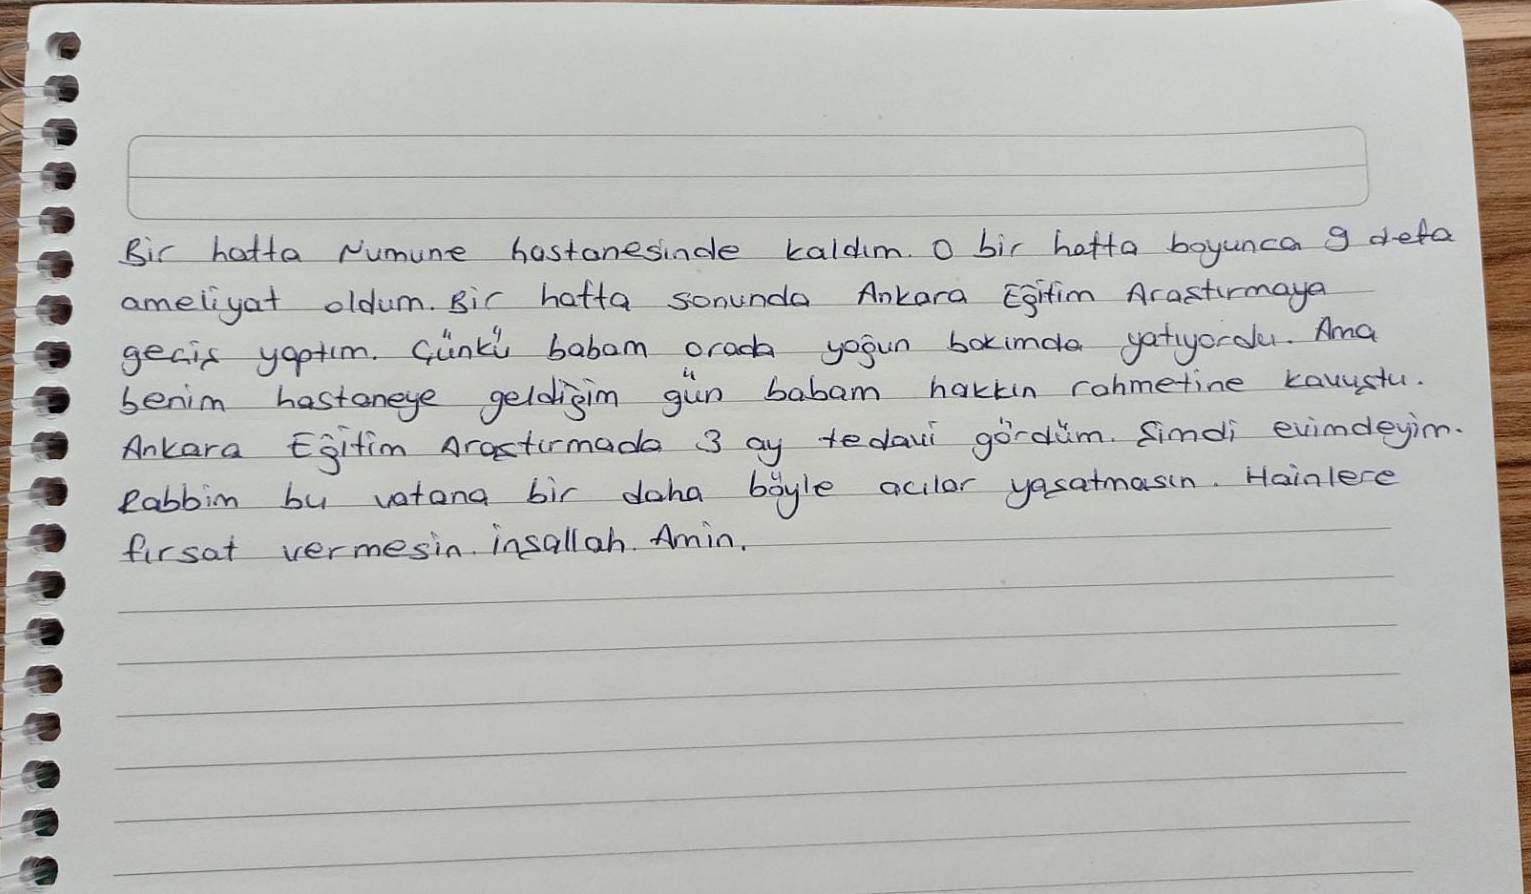 Bir hafta Numune hastanesinde kaldım. O bir hafta boyunca 9 defa
ameliyat oldum. Bir hafta sonunda Ankara Eğitim Araştırmaya
geçiş yaptım. Çünkü babam orada yoğun bakımda yatıyordu. Ama
benim hastaneye geldiğim gün babam hakkın rahmetine kavuştu.
Ankara Eğitim Araştırmada 3 ay tedavi gördüm. Şimdi evimdeyim.
Rabbim bu vatana bir daha böyle acılar yaşatmasın. Hainlere
fırsat vermesin. inşallah. Amin.